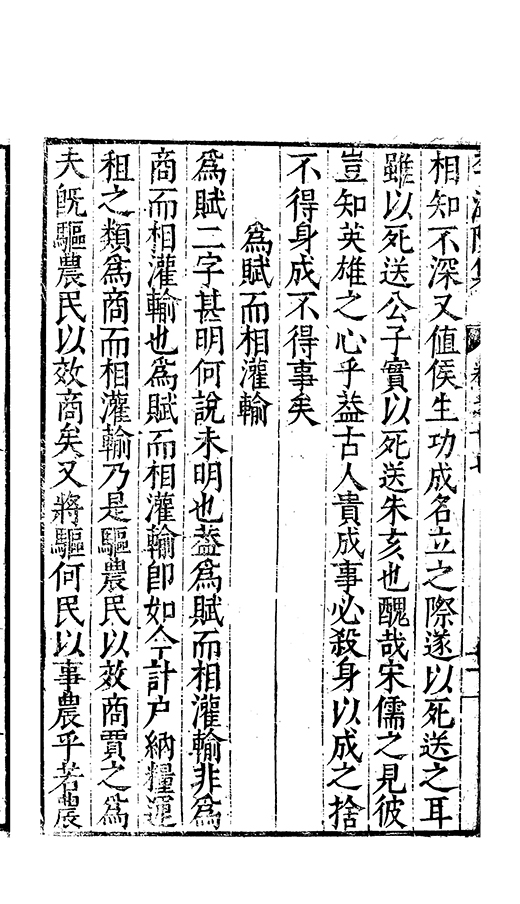 相知不深又值侯生功成名立之際遂以死送之耳
雖以死送公子實以死送朱亥也醜哉宋儒之見彼
豈知英雄之心乎葢古人貴成事必殺身以成之捨
不得身成不得事矣
爲賦而相灌輸
爲賦二字甚明何說未明也葢爲賦而相灌輸非爲
商而相灌輸也爲賦而相灌輸卽如今計戸納糧運
租之類爲商而相灌輸乃是驅農民以效商賈之爲
夫旣驅農民以效商矣又將驅何民以事農乎若農